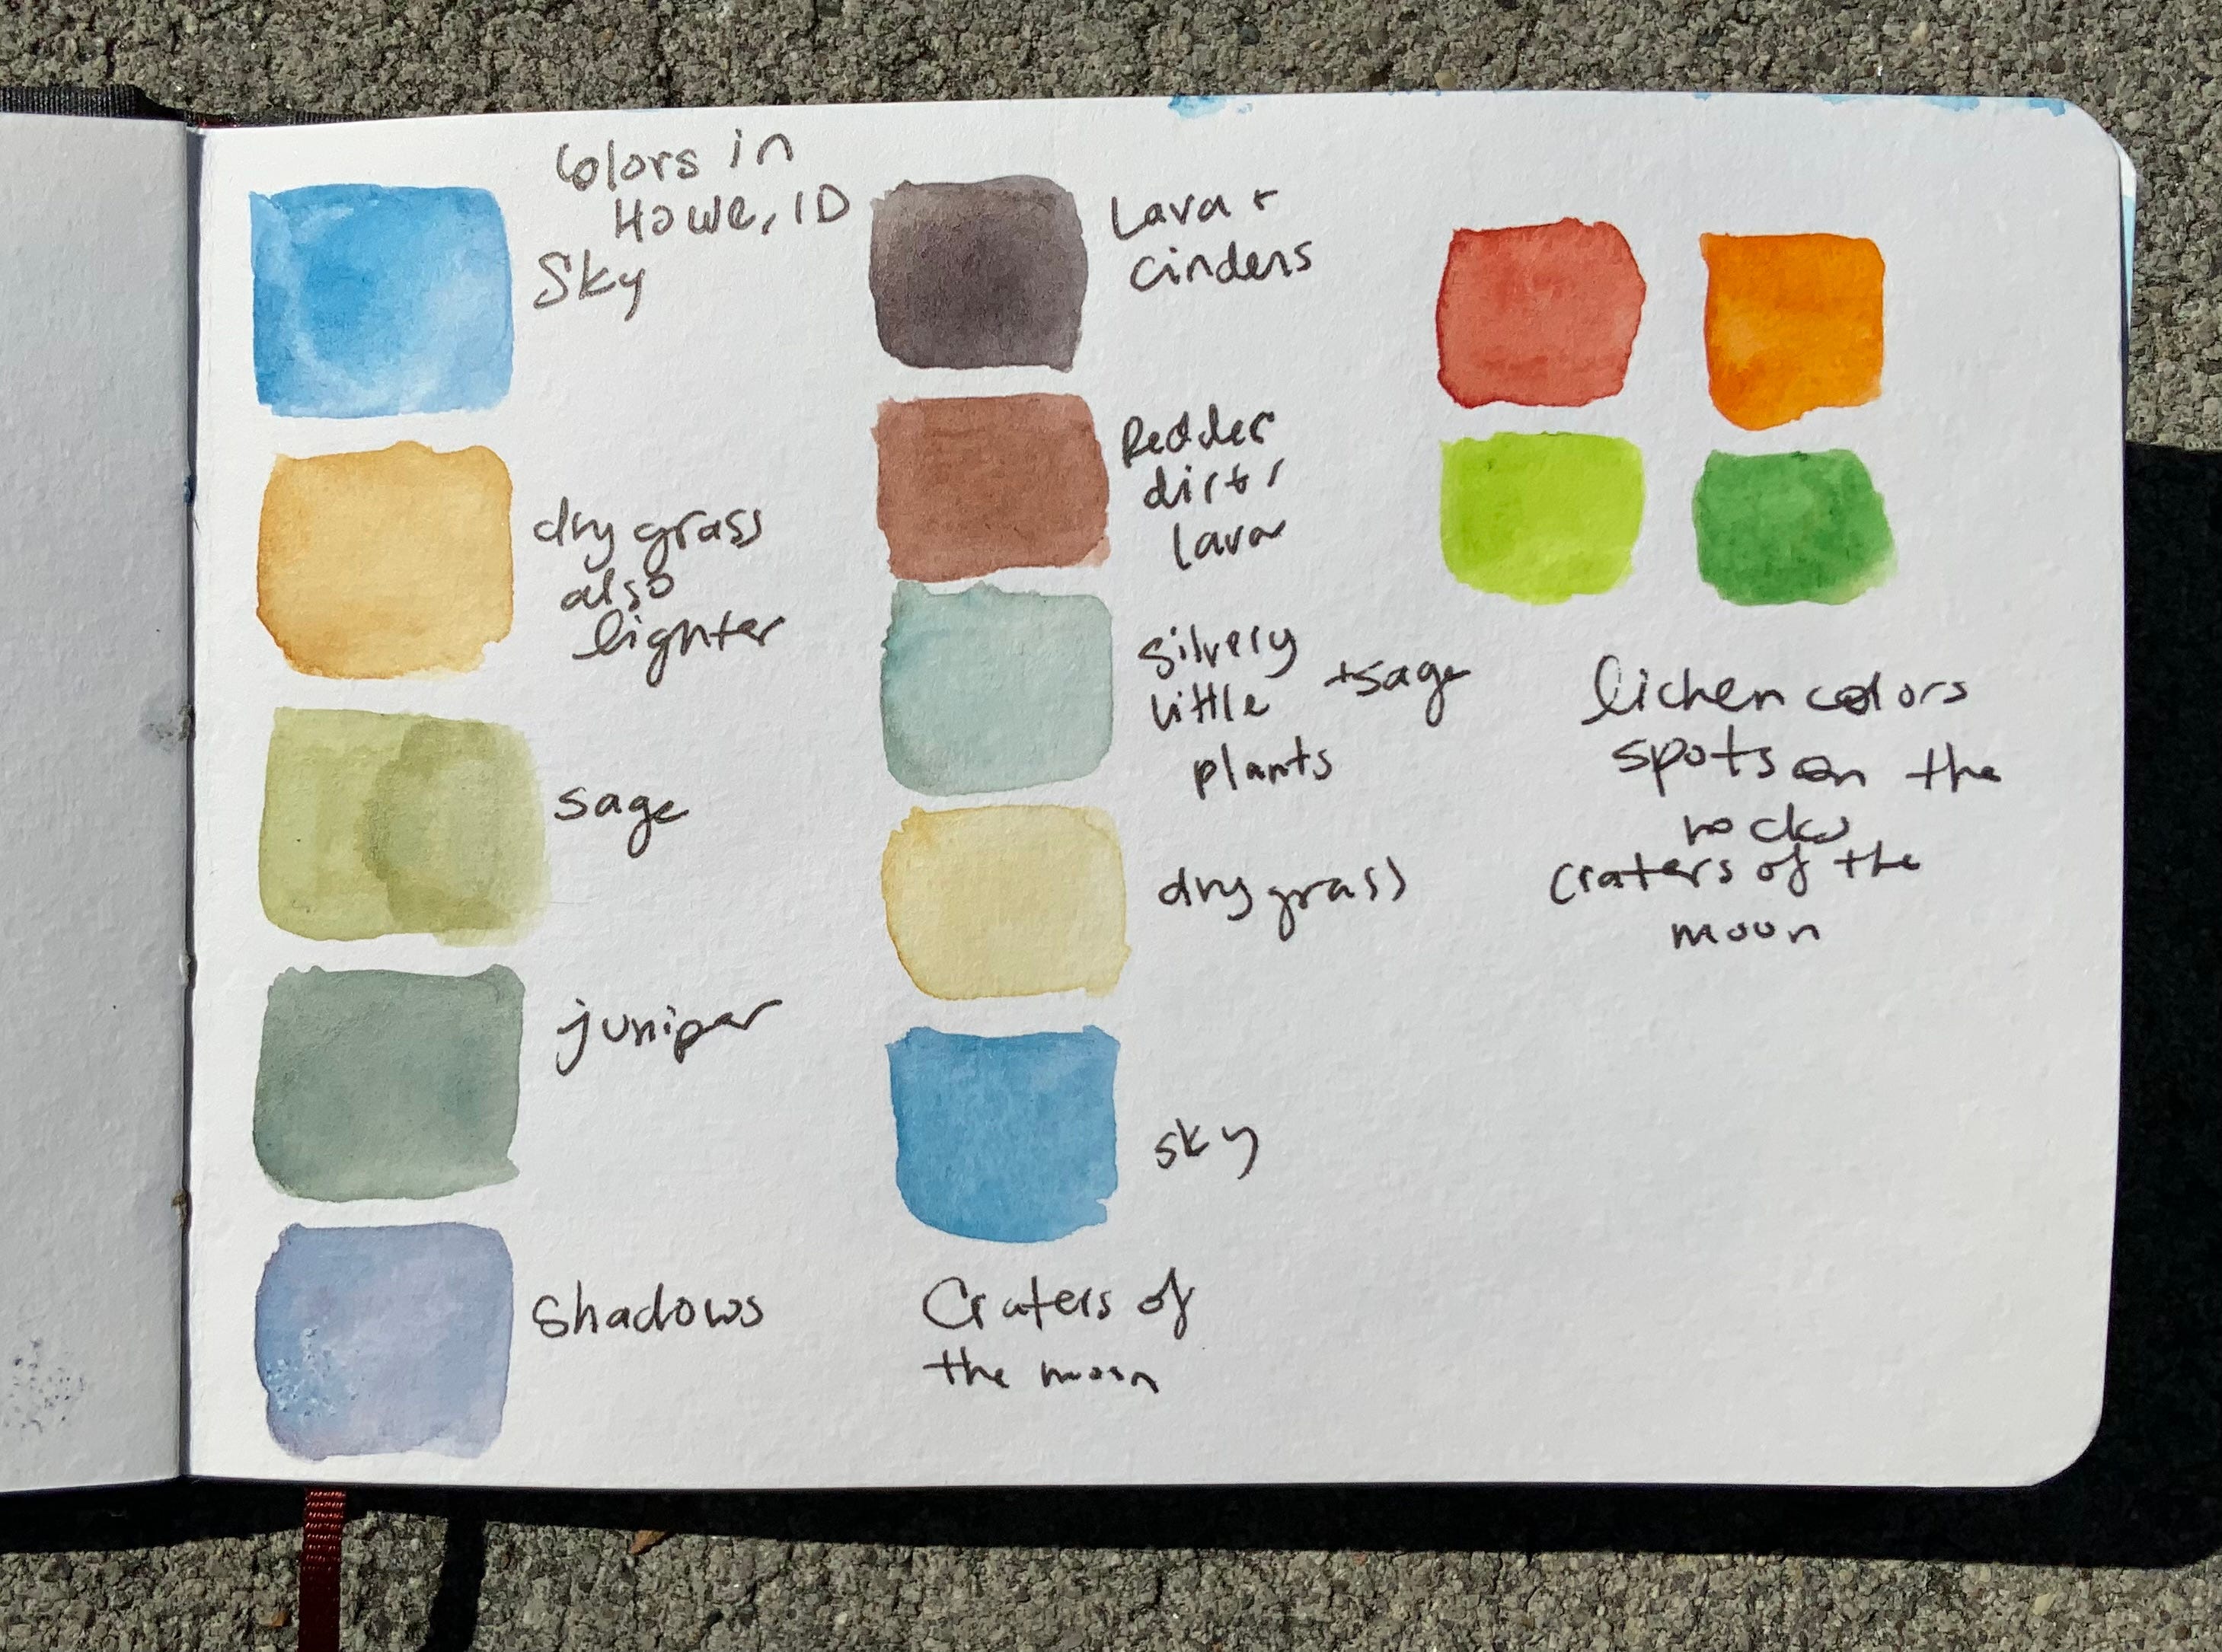 Colors in
Howe, ID
Sky
dry grass
also
lighter
sage
juniper
Shadows
Lava +
cinders
Redder
dirt /
lava
Silvery
little + sage
plants
dry grass
sky
Craters of
the moon
lichen colors
spots on the
rocks
craters of the
moon